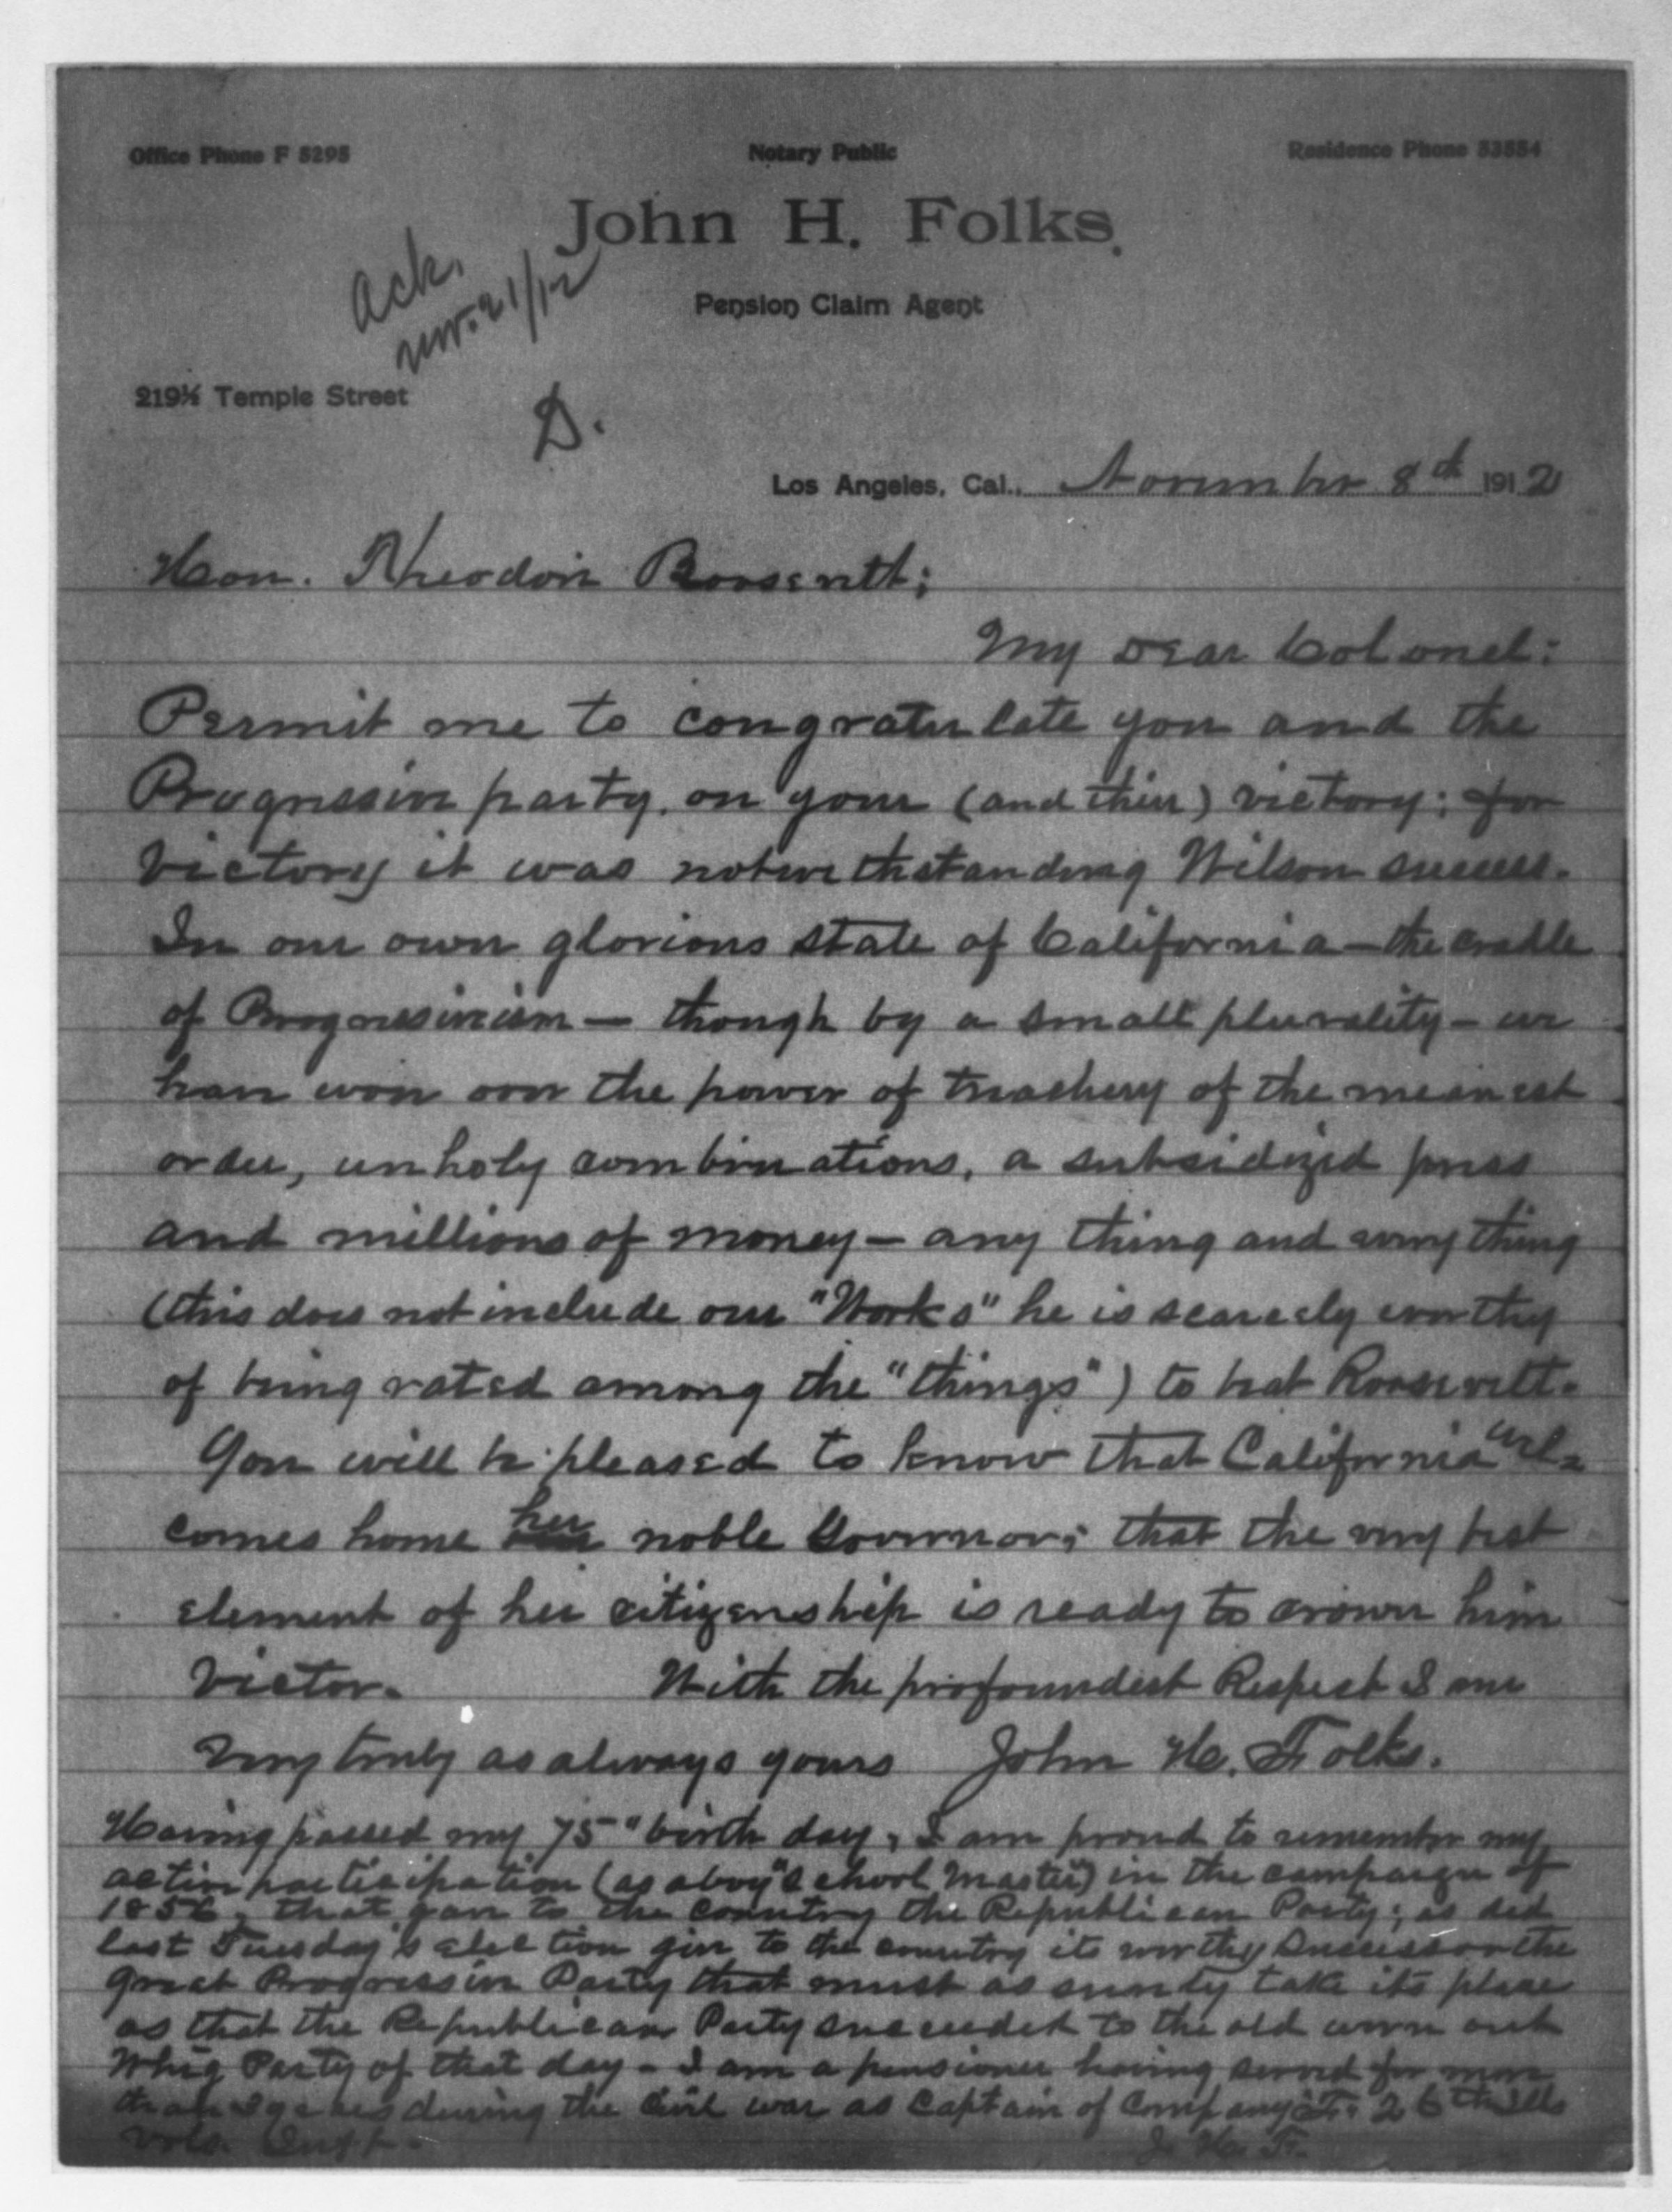 Office Phone F 5295
Notary Public
Residence Phone 53554
John H. Folks.
Pension Claim Agent
ack.
nov. 21/12
219½ Temple Street
D.
Los Angeles, Cal., November 8th 1912
Hon. Theodore Roosevelt;
My Dear Colonel:
Permit me to congratulate you and the
Progressive party, on your (and their) victory; for
victory it was notwithstanding Wilson success.
In our own glorious state of California—the cradle
of Progressivism — though by a small plurality — we
have won over the power of treachery of the meanest
order, unholy combinations, a subsidized press
and millions of money — any thing and every thing
(this does not include our "Works" he is scarcely worthy
of being rated among the "things") to beat Roosevelt.
You will be pleased to know that California wel=
comes home her noble Governor; that the very best
element of her citizenship is ready to crown him
victor. With the profoundest Respect I am
Very truly as always yours John H. Folks.
Having passed my 75" birth day, I am proud to remember my
active participation (as a boy "School Master") in the campaign of
1856, that gave to the country the Republican Party; as did
last Tuesday's election give to the country its worthy Successor the
great Progressive Party that must as surely take its place
as that the Republican Party succeeded to the old worn out
Whig Party of that day - I am a pensioner having served for more
than 3 years during the Civil war as Captain of Company 26th Ills
Vols. Inft.
J. H. F.